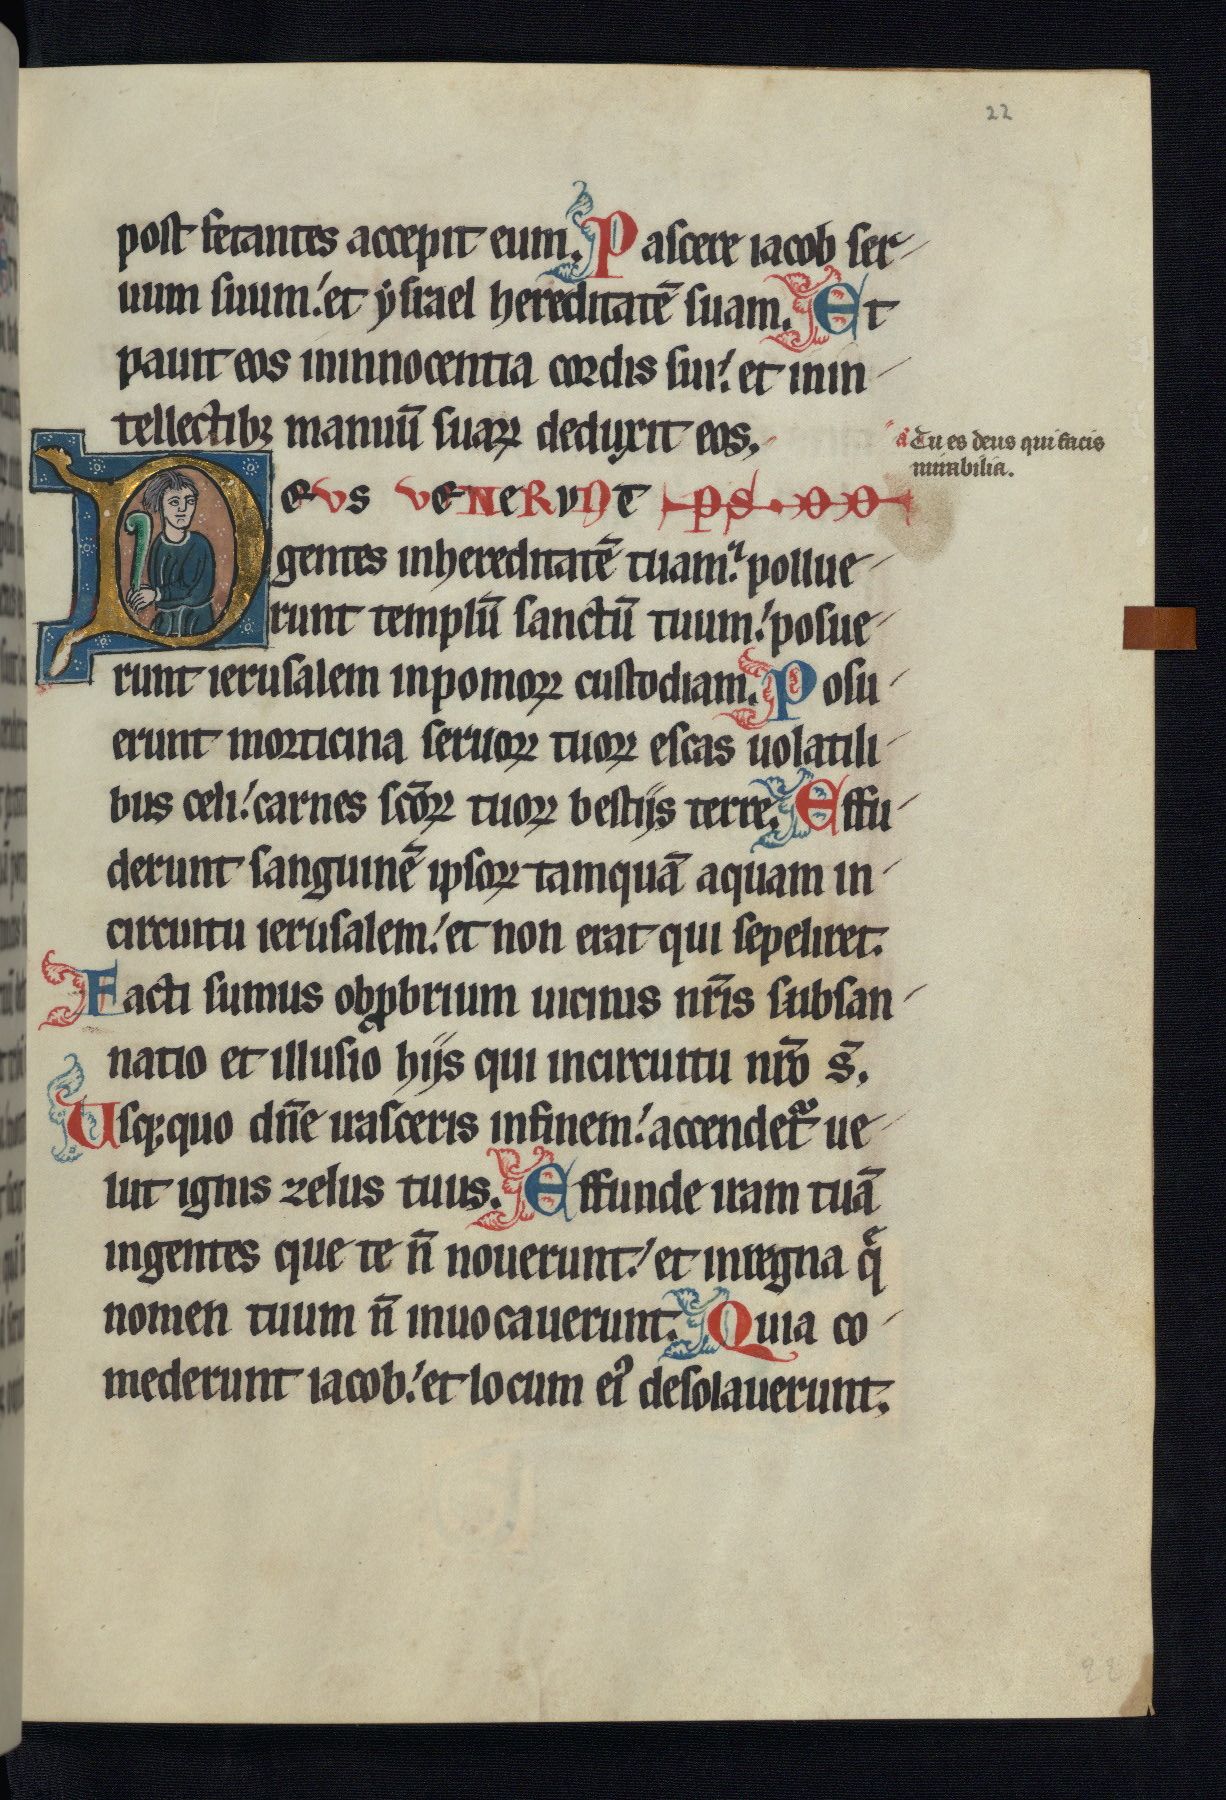 22
post fetantes accepit eum. Pascere iacob ser
uum suum: et ysrael hereditatē suam. Et
pauit eos ininnocentia cordis sui: et inin
tellectibꝫ manuū suaꝝ deduxit eos.
a Tu es deus qui facis
mirabilia.
DEVS VENERVNT PS
gentes inhereditatē tuam: pollue
runt templū sanctū tuum: posue
runt ierusalem inpomoꝝ custodiam. Posu
erunt morticina seruoꝝ tuoꝝ escas uolatili
bus celi: carnes scōꝝ tuoꝝ bestijs terre. Effu
derunt sanguinē ipsoꝝ tamquā aquam in
circuitu ierusalem: et non erat qui sepeliret.
Facti sumus obꝓbrium uicinis nr̄is subsan
natio et illusio hijs qui incircuitu nr̄o s̄.
Usqꝫquo dn̄e irasceris infinem: accendet᷑ ue
lut ignis zelus tuus. Effunde iram tuā
ingentes que te n̄ nouerunt: et inregna q̄
nomen tuum n̄ inuocauerunt. Quia co
mederunt iacob: et locum eiꝰ desolauerunt.
22